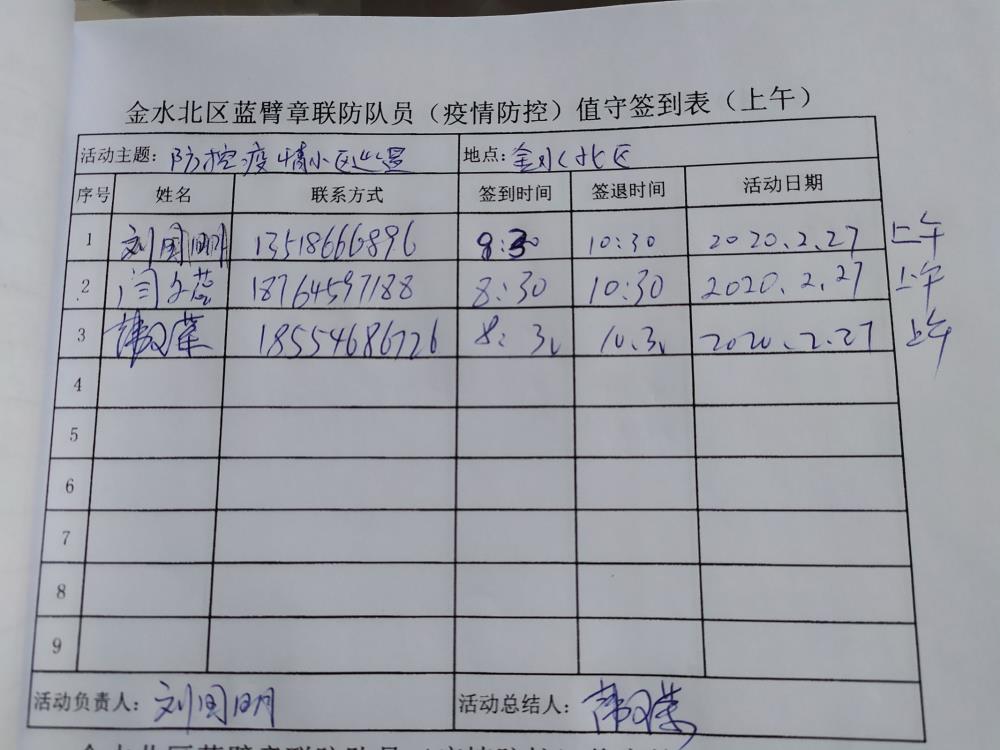 金水北区蓝臂章联防队员（疫情防控）值守签到表（上午）
活动主题：防控疫情小区巡逻 地点：金水北区
序号 姓名 联系方式 签到时间 签退时间 活动日期
1 刘国明 13518666896 8:30 10:30 2020.2.27 上午
2 闫文莲 18764597188 8:30 10:30 2020.2.27 上午
3 韩 18554686726 8:30 10.30 2020.2.27 上午
4
5
6
7
8
9
活动负责人：刘国明 活动总结人：韩